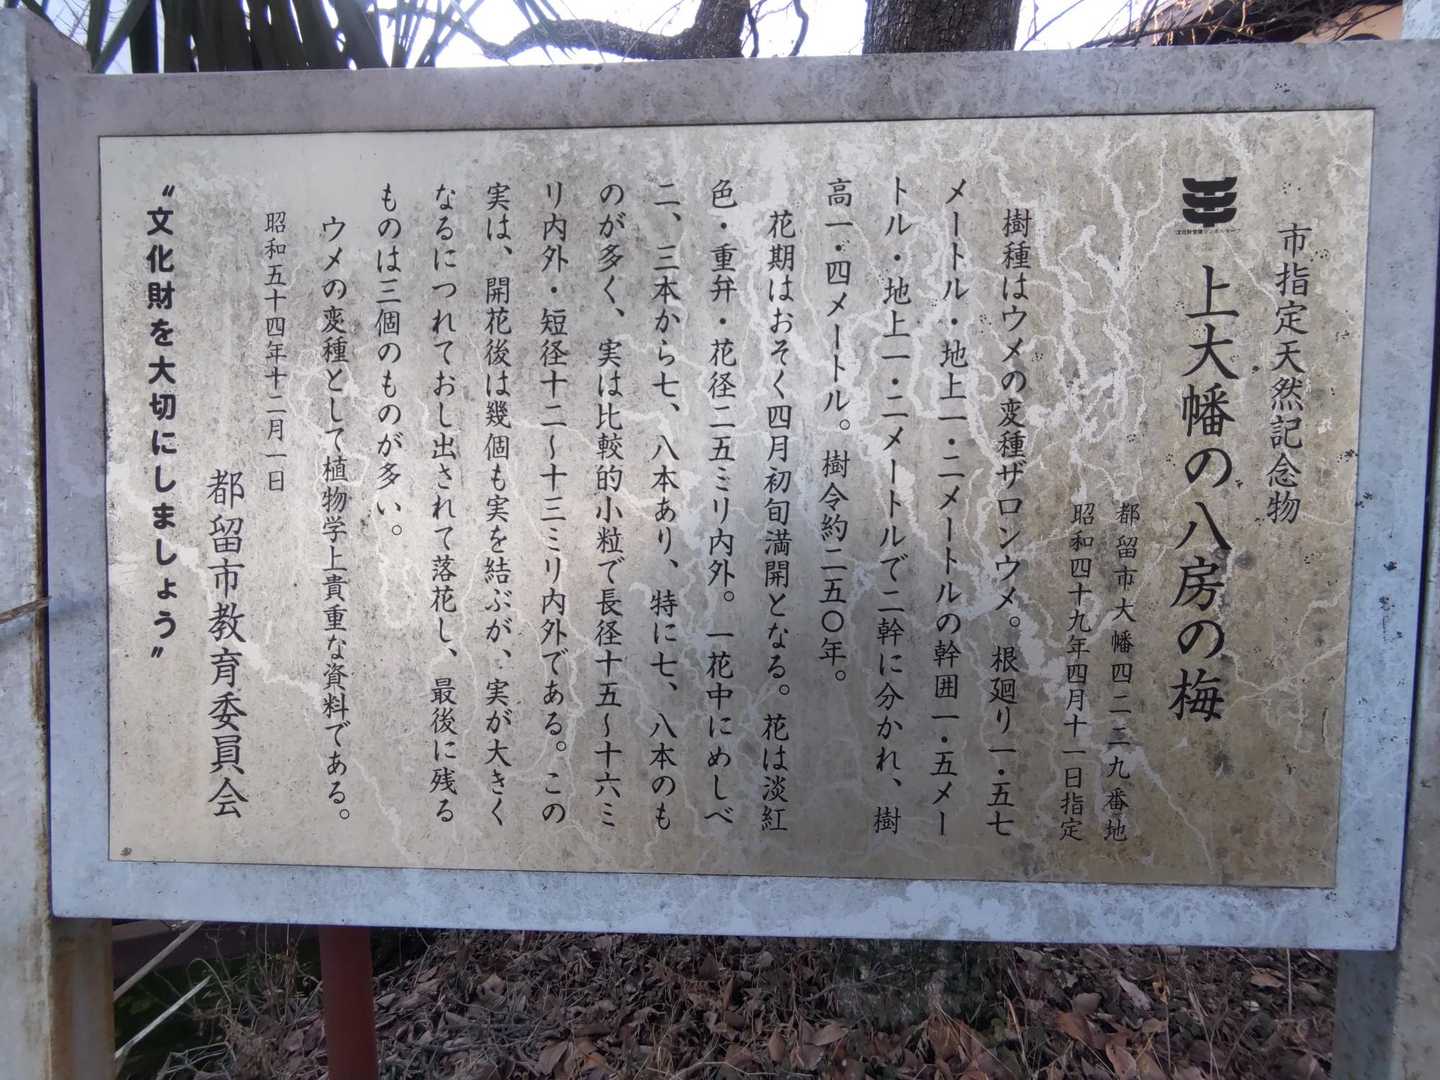 市指定天然記念物
上大幡の八房の梅
都留市大幡四二三九番地
昭和四十九年四月十一日指定
樹種はウメの変種ザロンウメ。根廻り一・五七
メートル・地上一・二メートルの幹囲一・五メー
トル・地上一・二メートルで二幹に分かれ、樹
高一・四メートル。樹令約二五〇年。
花期はおそく四月初旬満開となる。花は淡紅
色・重弁・花径二五ミリ内外。一花中にめしべ
二、三本から七、八本あり、特に七、八本のも
のが多く、実は比較的小粒で長径十五〜十六ミ
リ内外・短径十二〜十三ミリ内外である。この
実は、開花後は幾個も実を結ぶが、実が大きく
なるにつれておし出されて落花し、最後に残る
ものは三個のものが多い。
ウメの変種として植物学上貴重な資料である。
昭和五十四年十二月一日
都留市教育委員会
〝文化財を大切にしましょう〟